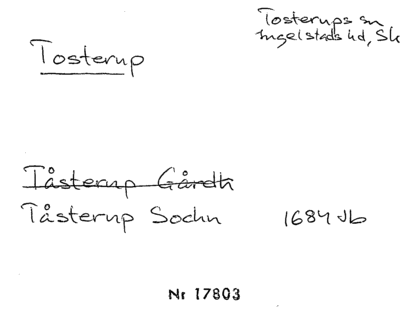 Tosterups sn
Ingelstads hd, Sk
Tosterup
Tåsterup Gårdh
Tåsterup Sochn 1684 Jb
Nr 17803